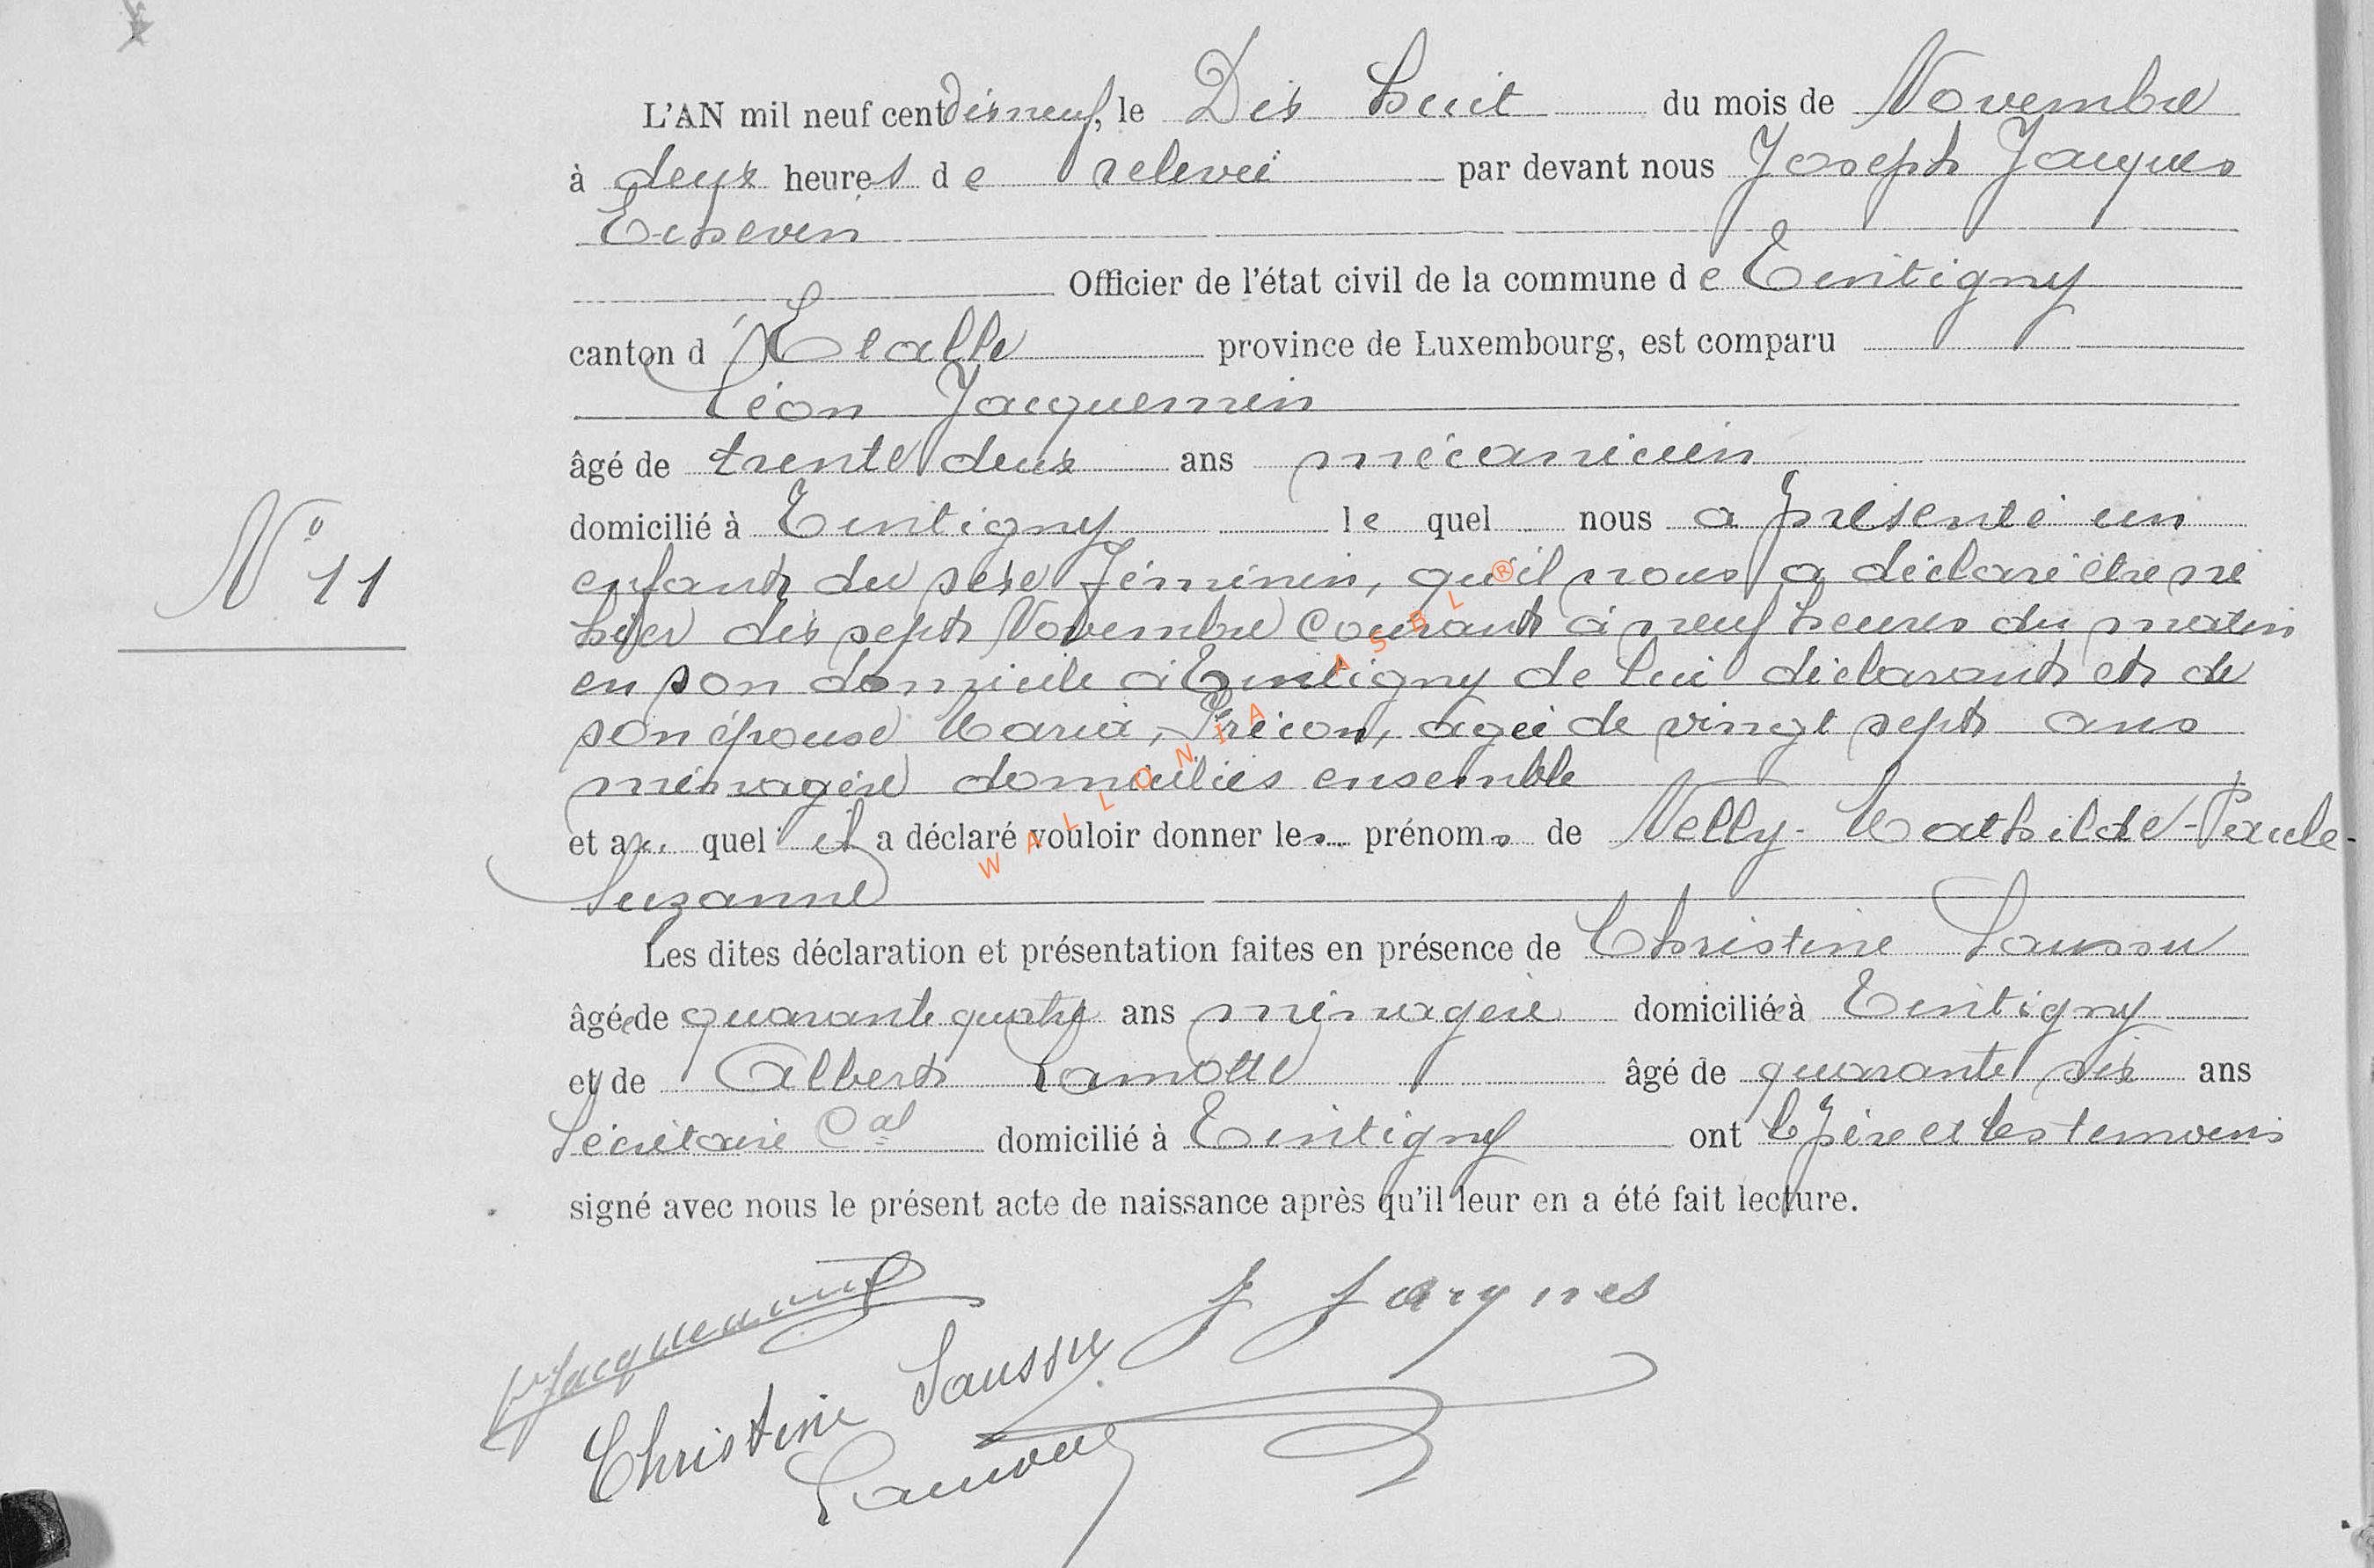 L'AN mil neuf cent disneuf, le Dix huit du mois de Novembre
à deux heures de relevée par devant nous Joseph Jacques
Echevin
Officier de l'état civil de la commune de Tintigny
canton d'Etalle province de Luxembourg, est comparu
Léon Jacquemin
âgé de trente deux ans mécanicien
domicilié à Tintigny le quel nous a présenté un
N° 11
enfant du sexe féminin, qu'il nous a déclaré être né
hier dix sept Novembre Courant à neuf heures du matin
en son domicile à Tintigny de lui déclarant et de
son épouse Maria, agée de vingt sept ans
ménagère domiciliés ensemble
et au quel il a déclaré vouloir donner les prénoms de Nelly-Mathilde-Paule-
Suzanne
Les dites déclaration et présentation faites en présence de Christine Saussu
âgée de quarante quatre ans ménagère domiciliée à Tintigny
et de Albert Lamotte âgé de quarante six ans
Secrétaire Cal domicilié à Tintigny ont le père et les temoins
signé avec nous le présent acte de naissance après qu'il leur en a été fait lecture.
J Jacques
Christine Saussu
WALLONIA ASBL ®